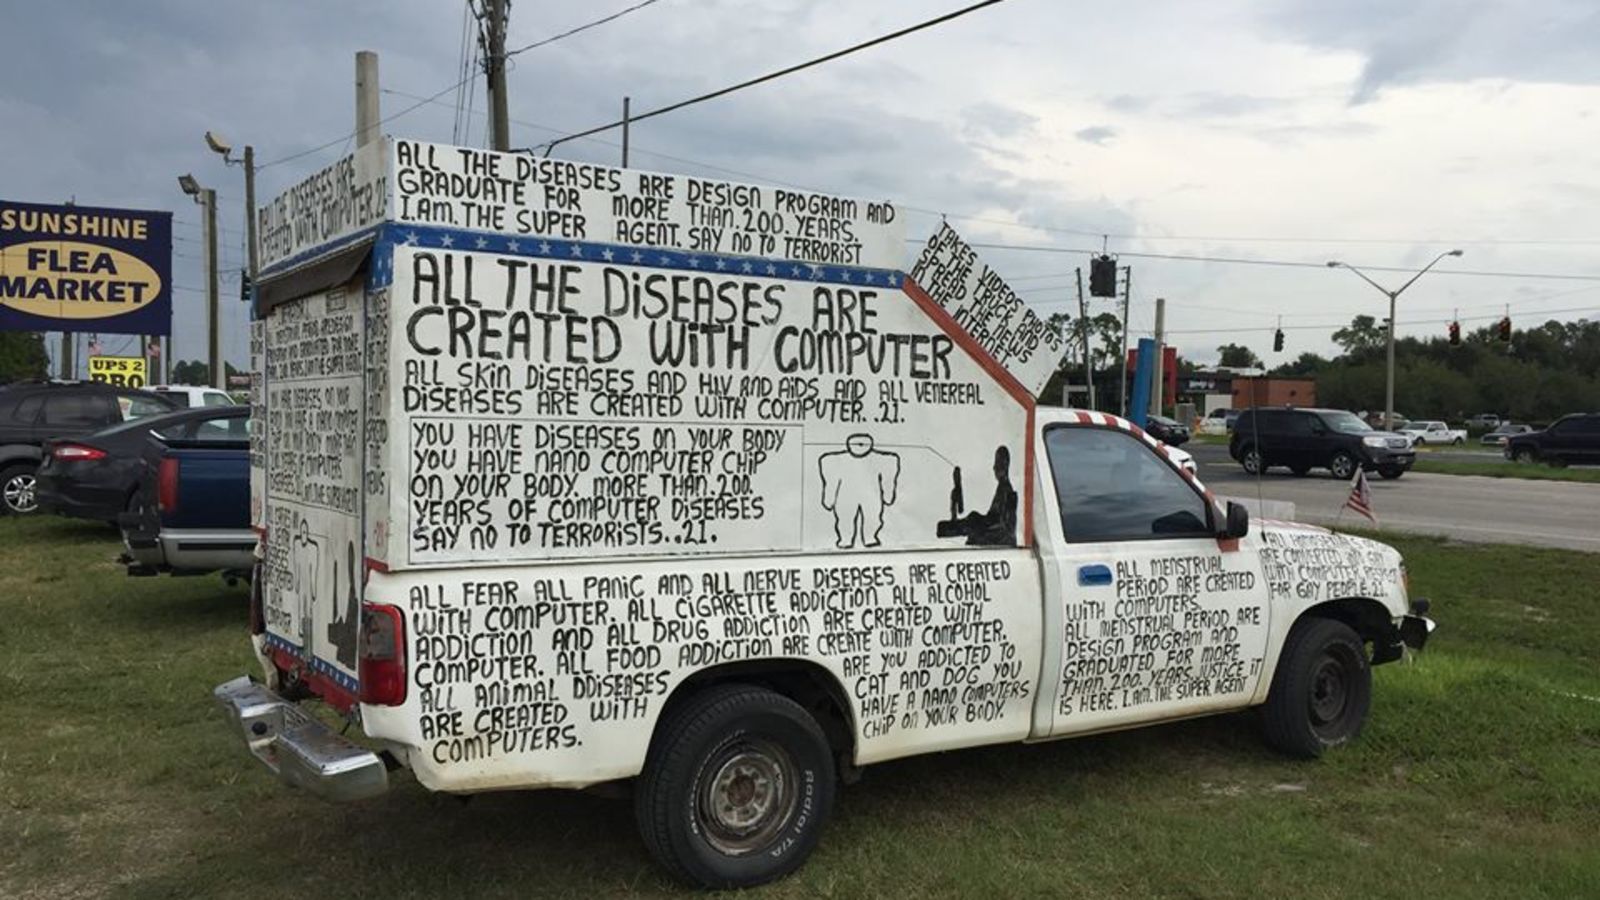 SUNSHINE
FLEA
MARKET
UPS 2
PRO
ALL THE DISEASES ARE
CREATED WITH COMPUTER.21
ALL THE DISEASES ARE DESIGN PROGRAM AND
GRADUATE FOR MORE THAN.200.YEARS.
I.AM.THE SUPER AGENT. SAY NO TO TERRORIST
TAKES VIDEOS PHOTOS
OF THE TRUCK AND
SPREAD THE NEWS
IN THE INTERNET.
ALL THE DISEASES ARE
CREATED WITH COMPUTER
ALL SKIN DISEASES AND HIV AND AIDS AND ALL VENEREAL
DISEASES ARE CREATED WITH COMPUTER..21.
YOU HAVE DISEASES ON YOUR BODY
YOU HAVE NANO COMPUTER CHIP
ON YOUR BODY. MORE THAN.200.
YEARS OF COMPUTER DISEASES
SAY NO TO TERRORISTS..21.
ALL FEAR ALL PANIC AND ALL NERVE DISEASES ARE CREATED
WITH COMPUTER. ALL CIGARETTE ADDICTION ALL ALCOHOL
ADDICTION AND ALL DRUG ADDICTION ARE CREATED WITH
COMPUTER. ALL FOOD ADDICTION ARE CREATE WITH COMPUTER.
ALL ANIMAL DDISEASES
ARE CREATED WITH
COMPUTERS.
ARE YOU ADDICTED TO
CAT AND DOG YOU
HAVE A NANO COMPUTERS
CHIP ON YOUR BODY.
ALL MENSTRUAL
PERIOD ARE CREATED
WITH COMPUTERS.
ALL MENSTRUAL PERIOD ARE
DESIGN PROGRAM AND
GRADUATED FOR MORE
THAN.200.YEARS.JUSTICE IT
IS HERE. I.AM.THE SUPER AGENT
ARE CONVERTED IN GAY
WITH COMPUTER. RESPECT
FOR GAY PEOPLE.21.
radial T/A